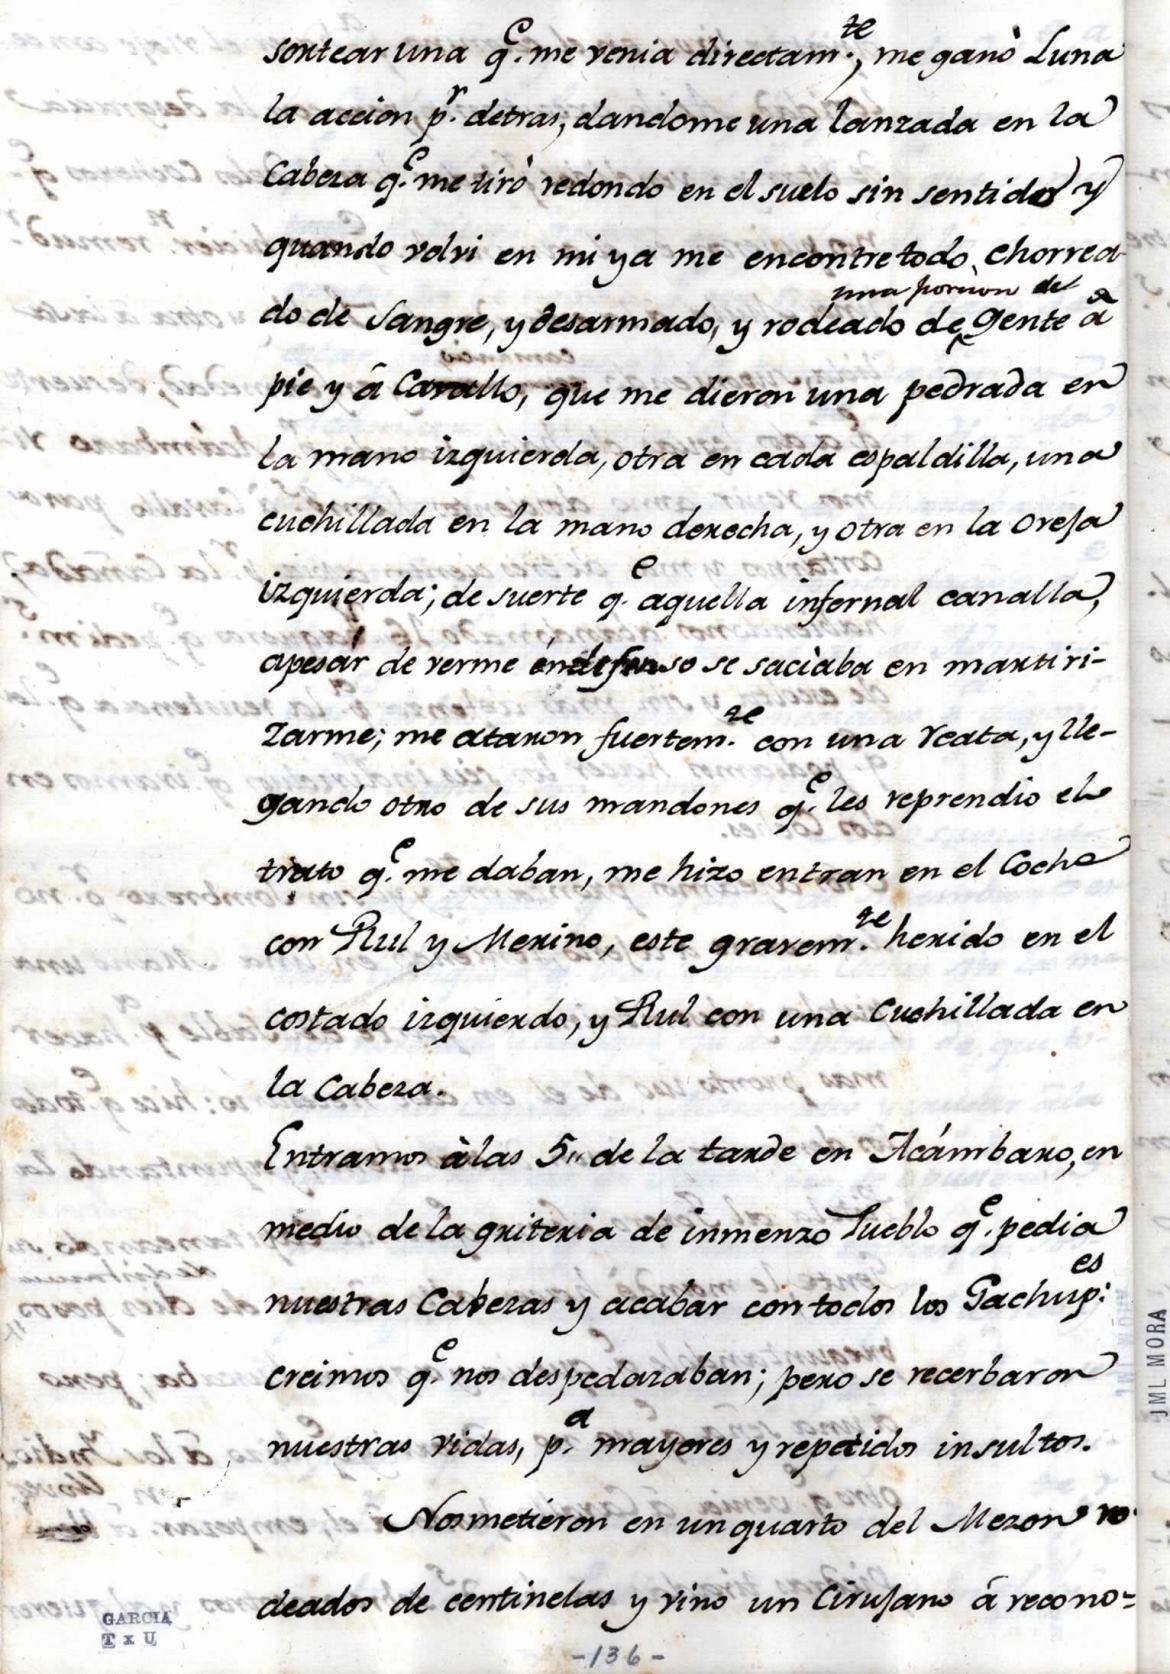 sortear una q.e me venia directam.te, me ganò Luna
la accion p.r detras, dandome una lanzada en la
Cabeza q.e me tirò redondo en el suelo sin sentido y
quando volvi en mi ya me encontre todo chorrea-
do de Sangre, y desarmado, y rodeado de una porcion de Gente à
pie y á Cavallo, que me dieron una pedrada en
la mano izquierda, otra en cada espaldilla, una
cuchillada en la mano derecha, y otra en la Oreja
izquierda; de suerte q.e aquella infernal canalla,
apesár de verme éndefenso se saciaba en martiri-
zarme; me ataron fuertem.te con una reata, y lle-
gando otro de sus mandones q.e les reprendio el
trato q.e me daban, me hizo entrar en el Coche
con Rul y Merino, este gravem.te herido en el
costado izquierdo, y Rul con una Cuchillada en
la Cabeza.
Entramos àlas 5,, de la tarde en Acámbaro, en
medio de la griteria de inmenzo Pueblo q.e pedia
nuestras Cabezas y acabar con todos los Gachup.es
creimos q.e nos despedazaban; pero se recerbaron
nuestras vidas, p.a mayores y repetidos insultos.
Nos metieron en un quarto del Mezon ro-
deados de centinelas y vino un Cirujano á recono=
GARCIA
T x U
-136-
JML MORA